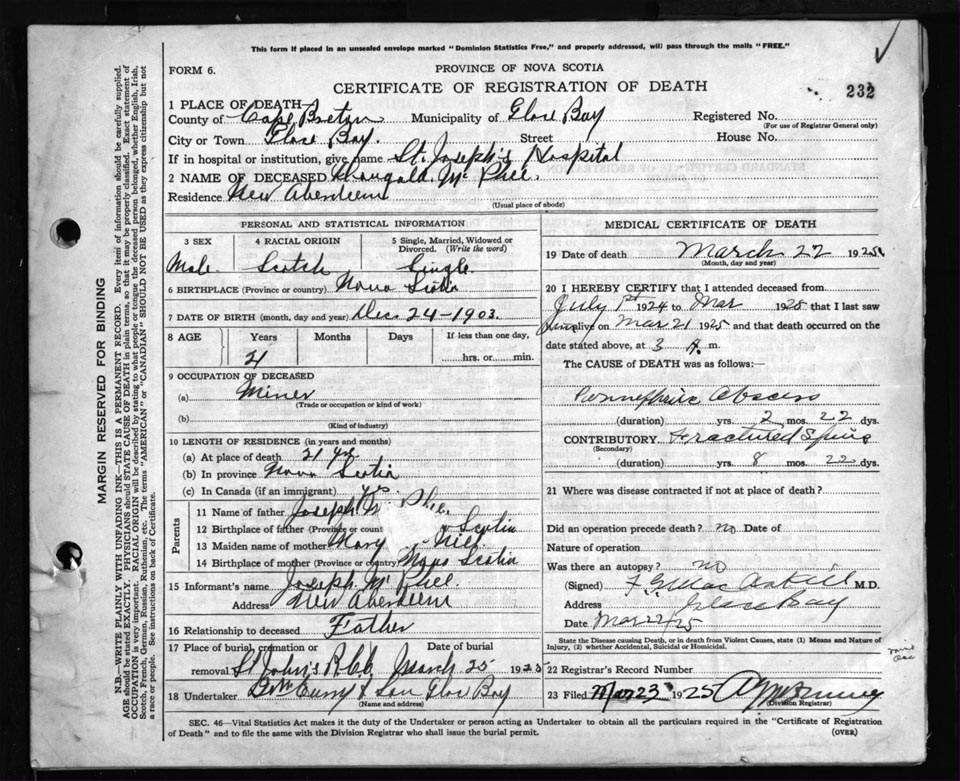 This form if placed in an unsealed envelope marked "Dominion Statistics Free," and properly addressed, will pass through the mails "FREE."
FORM 6.
PROVINCE OF NOVA SCOTIA
CERTIFICATE OF REGISTRATION OF DEATH
232
1 PLACE OF DEATH—
County of Cape Breton Municipality of Glace Bay Registered No.
(For use of Registrar General only)
City or Town Glace Bay. Street House No.
If in hospital or institution, give name St. Joseph's Hospital
2 NAME OF DECEASED Dougald Mc Phee.
Residence New Aberdeen
(Usual place of abode)
PERSONAL AND STATISTICAL INFORMATION
3 SEX 4 RACIAL ORIGIN 5 Single, Married, Widowed or Divorced. (Write the word)
Male Scotch Single
6 BIRTHPLACE (Province or country) Nova Scotia
7 DATE OF BIRTH (month, day and year) Dec 24-1903.
8 AGE Years Months Days If less than one day,
21 hrs. or min.
9 OCCUPATION OF DECEASED
(a) Miner
(Trade or occupation or kind of work)
(b)
(Kind of industry)
10 LENGTH OF RESIDENCE (in years and months)
(a) At place of death 21 yrs
(b) In province Nova Scotia
(c) In Canada (if an immigrant)
Parents
11 Name of father Joseph Mc Phee.
12 Birthplace of father (Province or count Scotia
13 Maiden name of mother Mary
14 Birthplace of mother (Province or country) Nova Scotia
15 Informant's name Joseph Mc Phee.
Address New Aberdeen
16 Relationship to deceased Father
17 Place of burial, cremation or removal Date of burial
St John's March 25 1925
18 Undertaker Curry & Son Glace Bay
(Name and address)
MEDICAL CERTIFICATE OF DEATH
19 Date of death March 22 1925
(Month, day and year)
20 I HEREBY CERTIFY that I attended deceased from
July 1st 1924 to Mar 1925 that I last saw
him alive on Mar 21 1925 and that death occurred on the
date stated above, at 3 A. m.
The CAUSE OF DEATH was as follows:
Abscess
(duration) yrs. 2 mos. 22 dys.
CONTRIBUTORY. Fractured Spine
(Secondary)
(duration) yrs. 8 mos. 22 dys.
21 Where was disease contracted if not at place of death?
Did an operation precede death? no Date of
Nature of operation
Was there an autopsy? no
(Signed) M.D.
Address Glace Bay
Date Mar 22/25
State the Disease causing Death, or in death from Violent Causes, state (1) Means and Nature of Injury, (2) whether Accidental, Suicidal or Homicidal.
22 Registrar's Record Number
23 Filed Mar 23 1925
(Division Registrar)
SEC. 46—Vital Statistics Act makes it the duty of the Undertaker or person acting as Undertaker to obtain all the particulars required in the "Certificate of Registration
of Death" and to file the same with the Division Registrar who shall issue the burial permit.
(OVER)
MARGIN RESERVED FOR BINDING
N.B.—WRITE PLAINLY WITH UNFADING INK—THIS IS A PERMANENT RECORD. Every item of information should be carefully supplied.
AGE should be stated EXACTLY. PHYSICIANS should STATE CAUSE OF DEATH in plain terms, so that it may be properly classified. Exact statement of
OCCUPATION is very important. RACIAL ORIGIN will be described by stating to what people or tongue the deceased person belonged, whether English, Irish,
Scotch, French, German, Russian, Ruthenian, etc. The terms "AMERICAN" or "CANADIAN" SHOULD NOT BE USED as they express citizenship but not
a race or people. See instructions on back of Certificate.